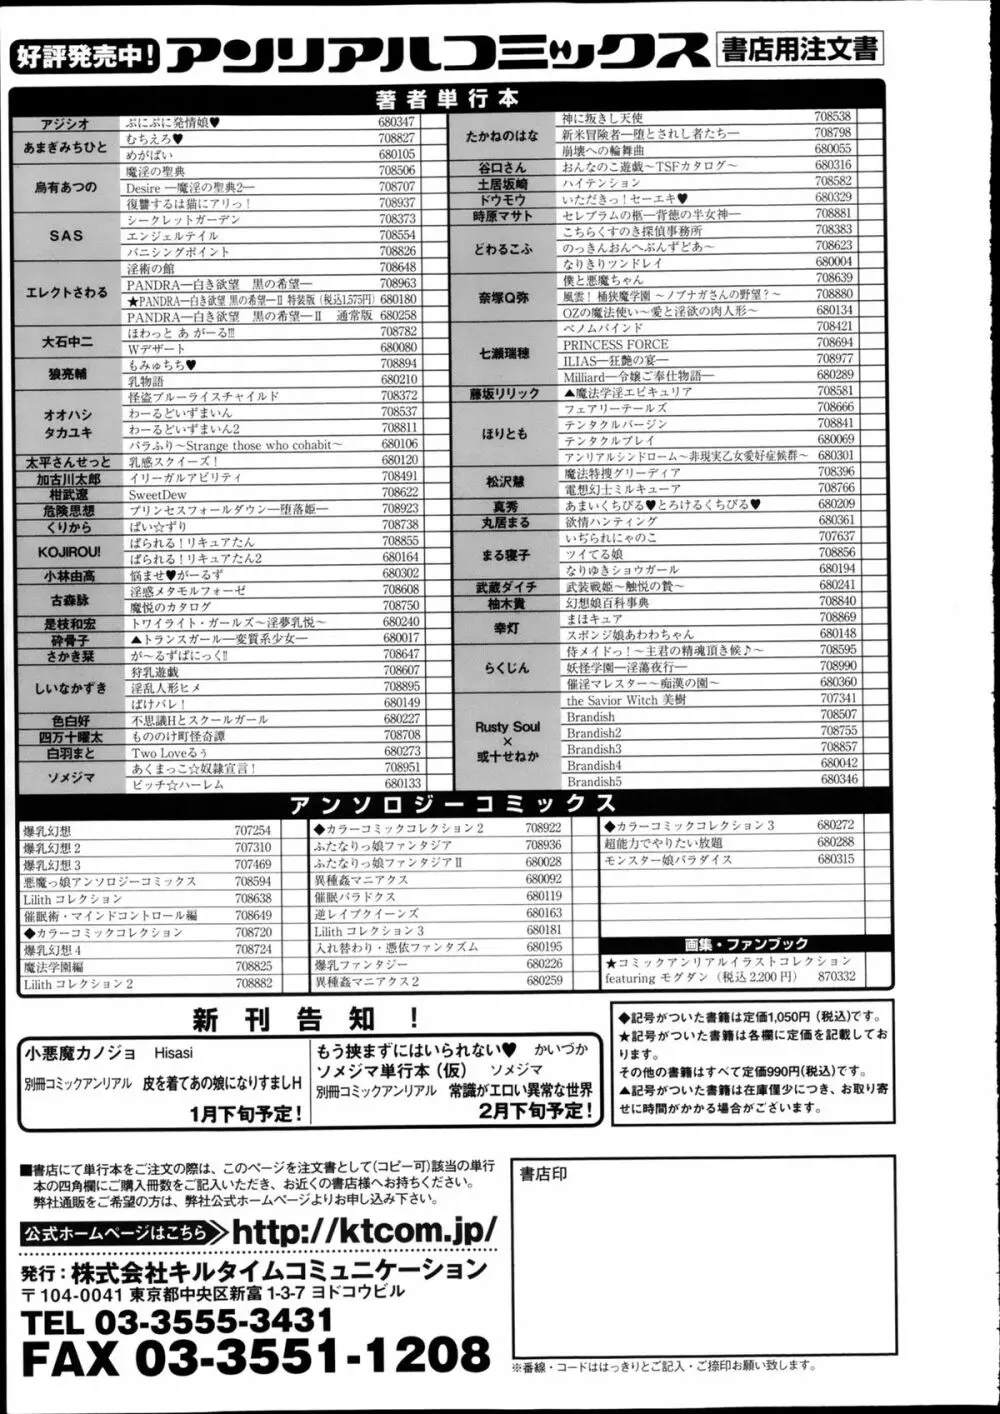 好評発売中!
アンリアルコミックス
書店用注文書
著者単行本
アジシオ ぷにぷに発情娘♥ 680347
あまぎみちひと むちえろ♥ 708827
めがぱい 680105
烏有あつの 魔淫の聖典 708506
Desire ―魔淫の聖典2― 708707
復讐するは猫にアリっ! 708937
SAS シークレットガーデン 708373
エンジェルテイル 708554
バニシングポイント 708826
エレクトさわる 淫術の館 708648
PANDRA―白き欲望 黒の希望― 708963
★PANDRA―白き欲望 黒の希望―II 特装版(税込1,575円) 680180
PANDRA―白き欲望 黒の希望―II 通常版 680258
大石中二 ほわっと あ がーる!!! 708782
Wデザート 680080
狼亮輔 もみゅちち♥ 708894
乳物語 680210
オオハシタカユキ 怪盗ブルーライスチャイルド 708372
わーるどいずまいん 708537
わーるどいずまいん2 708811
パラふり~Strange those who cohabit~ 680106
太平さんせっと 乳感スクイーズ! 680120
加古川太郎 イリーガルアビリティ 708491
柑武遼 SweetDew 708622
危険思想 プリンセスフォールダウン―堕落姫― 708923
くりから ぱい☆ずり 708738
KOJIROU! ぱられる!リキュアたん 708855
ぱられる!リキュアたん2 680164
小林由高 悩ませ♥がーるず 680302
古森詠 淫惑メタモルフォーゼ 708608
魔悦のカタログ 708750
是枝和宏 トワイライト・ガールズ~淫夢乳悦~ 680240
砕骨子 ▲トランスガール―変質系少女― 680017
さかき栞 が~るずぱにっく!! 708647
しいなかずき 狩乳遊戯 708607
淫乱人形ヒメ 708895
ばけバレ! 680149
色白好 不思議Hとスクールガール 680227
四万十曜太 もののけ町怪奇譚 708708
白羽まと Two Loveるぅ 680273
ソメジマ あくまっこ☆奴隷宣言! 708951
ビッチ☆ハーレム 680133
たかねのはな 神に叛きし天使 708538
新米冒険者―堕とされし者たち― 708798
崩壊への輪舞曲 680055
谷口さん おんなのこ遊戯~TSFカタログ~ 680316
土居坂崎 ハイテンション 708582
ドウモウ いただきっ!セーエキ♥ 680329
時原マサト セレブラムの柩―背徳の半女神― 708881
どわるこふ こちらくすのき探偵事務所 708383
のっきんおんへぶんずどあ~ 708623
なりきりツンドレイ 680004
奈塚Q弥 僕と悪魔ちゃん 708639
風雲!桶狭魔学園 ~ノブナガさんの野望?~ 708880
OZの魔法使い~愛と淫欲の肉人形~ 680134
七瀬瑞穂 ベノムバインド 708421
PRINCESS FORCE 708694
ILIAS―狂艶の宴― 708977
Milliard―令嬢ご奉仕物語― 680289
藤坂リリック ▲魔法学淫エピキュリア 708581
ほりとも フェアリーテールズ 708666
テンタクルバージン 708841
テンタクルプレイ 680069
アンリアルシンドローム~非現実乙女愛好症候群~ 680301
松沢慧 魔法特捜グリーディア 708396
電想幻士ミルキューア 708766
真秀 あまいくちびる♥とろけるくちびる♥ 680209
丸居まる 欲情ハンティング 680361
まる寝子 いぢられにゃのこ 707637
ツイてる娘 708856
なりゆきショウガール 680194
武蔵ダイチ 武装戦姫~触悦の贄~ 680241
柚木貴 幻想娘百科事典 708840
幸灯 まほキュア 708869
スポンジ娘あわわちゃん 680148
らくじん 侍メイドっ!~主君の精魂頂き候♪~ 708595
妖怪学園―淫蕩夜行― 708990
催淫マレスター~痴漢の園~ 680360
Rusty Soul×或十せねか the Savior Witch 美樹 707341
Brandish 708507
Brandish2 708755
Brandish3 708857
Brandish4 680042
Brandish5 680346
アンソロジーコミックス
爆乳幻想 707254
爆乳幻想2 707310
爆乳幻想3 707469
悪魔っ娘アンソロジーコミックス 708594
Lilith コレクション 708638
催眠術・マインドコントロール編 708649
◆カラーコミックコレクション 708720
爆乳幻想4 708724
魔法学園編 708825
Lilith コレクション2 708882
◆カラーコミックコレクション2 708922
ふたなりっ娘ファンタジア 708936
ふたなりっ娘ファンタジアII 680028
異種姦マニアクス 680092
催眠パラドクス 680119
逆レイプクイーンズ 680163
Lilith コレクション3 680181
入れ替わり・憑依ファンタズム 680195
爆乳ファンタジー 680226
異種姦マニアクス2 680259
◆カラーコミックコレクション3 680272
超能力でやりたい放題 680288
モンスター娘パラダイス 680315
画集・ファンブック
★コミックアンリアルイラストコレクション
featuring モグダン(税込2,200円) 870332
新刊告知!
小悪魔カノジョ Hisasi
別冊コミックアンリアル 皮を着てあの娘になりすましH
1月下旬予定!
もう挟まずにはいられない♥ かいづか
ソメジマ単行本(仮) ソメジマ
別冊コミックアンリアル 常識がエロい異常な世界
2月下旬予定!
◆記号がついた書籍は定価1,050円(税込)です。
★記号がついた書籍は各欄に定価を記載してお
ります。
その他の書籍はすべて定価990円(税込)です。
▲記号がついた書籍は在庫僅少につき、お取り寄
せに時間がかかる場合がございます。
■書店にて単行本をご注文の際は、このページを注文書として(コピー可)該当の単行
本の四角欄にご購入冊数をご記入いただき、お近くの書店様へお持ちください。
弊社通販をご希望の方は、弊社公式ホームページよりお申し込み下さい。
公式ホームページはこちら http://ktcom.jp/
発行:株式会社キルタイムコミュニケーション
〒104-0041 東京都中央区新富1-3-7 ヨドコウビル
TEL 03-3555-3431
FAX 03-3551-1208
書店印
※番線・コードははっきりとご記入・ご捺印お願い致します。